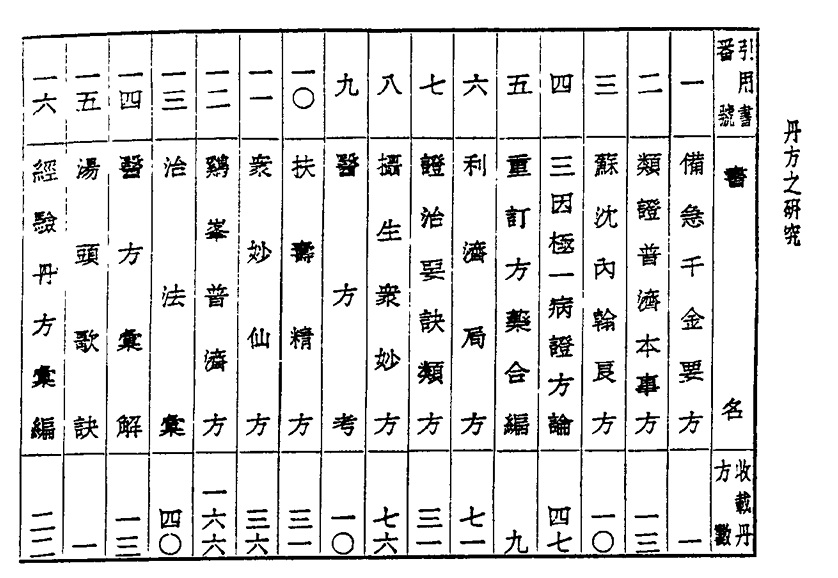 丹方之研究
引用書番號 書名 收載丹方數
一 備急千金要方 一
二 類證普濟本事方 一三
三 蘇沈內翰良方 一〇
四 三因極一病證方論 四七
五 重訂方藥合編 九
六 利濟局方 七一
七 證治要訣類方 三一
八 攝生衆妙方 七六
九 醫方考 一〇
一〇 扶壽精方 三一
一一 衆妙仙方 三六
一二 鷄峯普濟方 一六六
一三 治法彙 四〇
一四 醫方彙解 一三
一五 湯頭歌訣 一
一六 經驗丹方彙編 二二